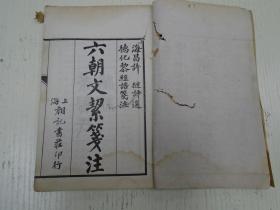 海昌許 槤評選
德化黎經誥箋注
六朝文絜箋注
上海朝記書莊印行